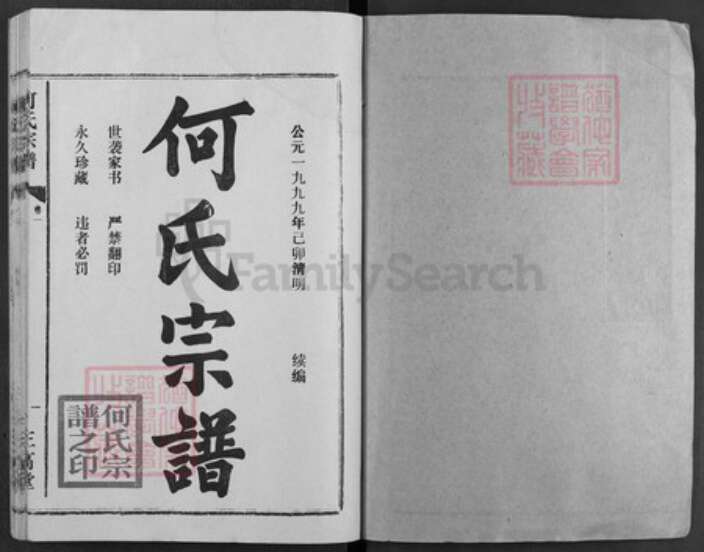 公元一九九九年己卯清明 续编
何氏宗譜
世袭家书 严禁翻印
永久珍藏 违者必罚
何氏宗
譜之印
何氏宗谱
卷一
一
FamilySearch